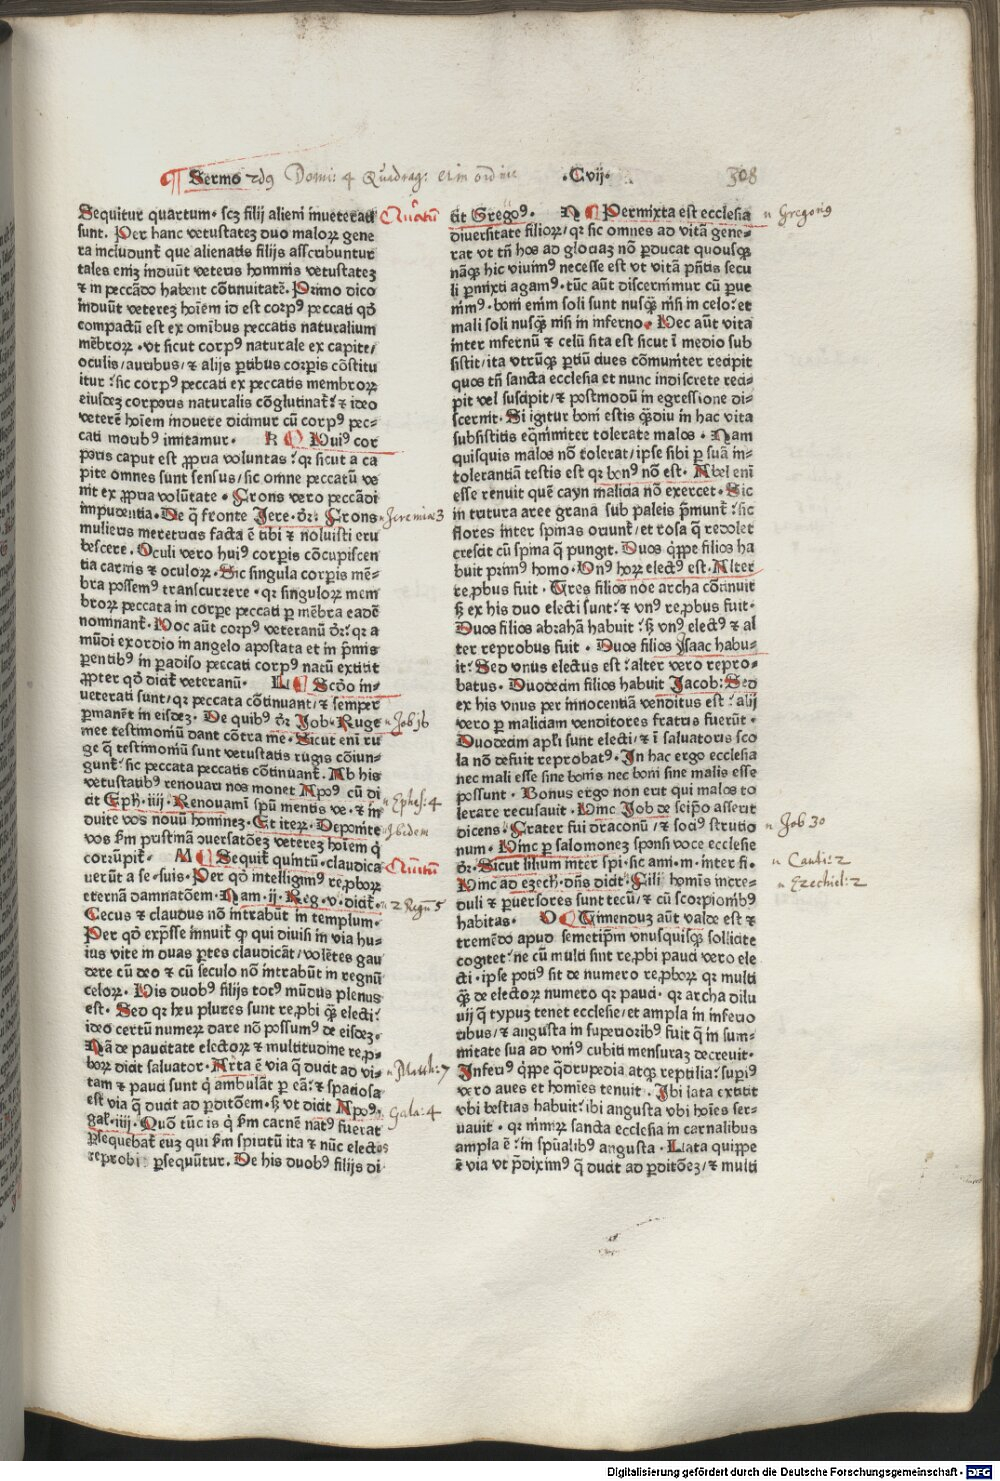 Sermo 2dꝰ Domi: 4 Quadrag: ·Cvij· 308
Sequitur quartum· scꝫ filij alieni inueterati
sunt. Per hanc vetustateꝫ duo maloꝝ gene
ra includunt̃ que alienatis filijs asscribuntur
tales eniꝫ induũt veteris hominis vetustateꝫ
⁊ in peccãdo habent cõtinuitatẽ. Primo dico
induũt vetereꝫ hoĩem id est corpꝰ peccati qð
compactũ est ex omĩbus peccatis naturalium
mẽbroꝝ· vt sicut corpꝰ naturale ex capite/
oculis/auribus/⁊ alijs partibus corpis cõstitu
itur: sic corpꝰ peccati ex peccatis membroꝝ
eiusdeꝫ corporis naturalis cõglutinat̃: ⁊ ideo
veterẽ hoĩem induere dicimur cũ corpꝰ pec-
cati moribꝰ imitamur· K Huiꝰ cor
poris caput est ꝓpria voluntas: qꝛ sicut a ca
pite omnes sunt sensus/sic omne peccatũ ve
nit ex ꝓpria volũtate· Frons vero peccãdi
impudentia· De q̃ fronte Jere· dr̃: Frons
mulieris meretricis facta ẽ tibi ⁊ noluisti eru
bescere. Oculi vero huiꝰ corpis cõcupiscen
tia carnis ⁊ oculoꝝ· Sic singula corpis mẽ-
bra possemꝰ transcurrere· qꝛ singuloꝝ mem
broꝝ peccata in corpe peccati ꝑ mẽbra eadẽ
nominant̃· Hoc aũt corpꝰ veteranũ dr̃: qꝛ a
mũdi exordio in angelo apostata et in p̃mis
ꝑentibꝰ in paradiso peccati corpꝰ natũ extitit
ꝓpter qð dicit̃ veteranũ· L Scðo in-
ueterati sunt/qꝛ peccata cõtinuant/⁊ semper
ꝑmanẽt in eisdeꝫ· De quibꝰ dr̃ Job· Ruge
mee testimoniũ dant cõtra me· Sicut eni ru
ge q̃ testimoniũ sunt vetustatis rugis cõiun-
gunt̃: sic peccata peccatis cõtinuant̃· Ab his
vetustatibꝰ renouari nos monet Apoꝰ cũ di
cit Eph· iiij· Renouamĩ spũ mentis ve· ⁊ in
duite vos nouũ homineꝫ· Et iteꝝ· Deponite
vos ẜm pristinã ↄuersatõeꝫ vetereꝫ hoĩem q̃
corrũpit̃· M Sequit̃ quintũ· claudica
uerũt a se·suis· Per qð intelligimꝰ reꝓboꝝ
eternã damnatõem· Nam·ij·Reg·v·dicit̃·
Cecus ⁊ claudus nõ intrabũt in templum·
Per qð exp̃sse innuit̃ ꝙ qui diuisi in via hu-
ius vite in duas ꝑtes claudicãt/volẽtes gau
dere cũ deo ⁊ cũ seculo nõ intrabũt in regnũ
celoꝝ· His duobꝰ filijs totꝰ mũdus plenus
est· Sed qꝛ heu plures sunt reꝓbi q̃ꝫ electi:
ideo certũ numeꝝ dare nõ possumꝰ de eisdeꝫ·
Nã de paucitate electoꝝ ⁊ multitudine reꝓ-
boꝝ dicit saluator· Arta ẽ via q̃ ducit ad vi-
tam ⁊ pauci sunt q̃ ambulãt ꝑ eã: ⁊ spaciosa
est via q̃ ducit ad ꝑditõem· ꝫ vt dicit Apoꝰ·
gal·iiij· Quõ tũc is q̃ ẜm carnẽ natꝰ fuerat
ꝑsequebat̃ euꝫ qui ẜm spiritũ ita ⁊ nũc electos
reprobi ꝑsequũtur· De his duobꝰ filijs di
Quartũ
Jeremiæ 3
Job 16
Ephes: 4
Ibidem
Quintũ
2 Regũ 5
Matth: 7
Gala: 4
cit Gregoꝰ· N Permixta est ecclesia
diuersitate filioꝝ/qꝛ sic omnes ad vitã gene-
rat vt tñ hos ad gloriaꝫ nõ ꝑducat quousqꝫ
nãqꝫ hic viuimꝰ necesse est vt vitã p̃ntis secu
li ꝑmixti agamꝰ· tũc aũt discernimur cũ ꝑue
nimꝰ· boni enim soli sunt nusqꝫ nisi in celo: et
mali soli nusqꝫ nisi in inferno· Nec aũt vita
inter infernũ ⁊ celũ sita est sicut ĩ medio sub
sistit/ita vtrũqꝫ ꝑtiũ ciues cõmuniter recipit
quos tñ sancta ecclesia et nunc indiscrete reci-
pit vel suscipit/⁊ postmodũ in egressione di-
scernit· Si igitur boni estis q̃ꝫdiu in hac vita
subsistitis eq̃nimiter tolerate malos· Nam
quisquis malos nõ tolerat/ipse sibi ꝑ suã in-
tolerantiã testis est qꝛ bonꝰ nõ est· Abel enĩ
esse renuit quẽ cayn malicia nõ exercet· Sic
in tritura aree grana sub paleis p̃munt̃: sic
flores inter spinas oriunt̃/et rosa q̃ redolet
crescit cũ spina q̃ pungit. Duos q̃ppe filios ha
buit primꝰ homo· Vnꝰ hoꝝ electꝰ est· Alter
reꝓbus fuit· Tres filios noe archa cõtinuit
ꝫ ex his duo electi sunt: ⁊ vnꝰ reꝓbus fuit·
Duos filios abrahã habuit: ꝫ vnꝰ electꝰ ⁊ al
ter reprobus fuit· Duos filios Jsaac habu-
it: Sed vnus electus est: alter vero repro-
batus· Duodecim filios habuit Jacob: Sed
ex his vnus per innocentiã venditus est: alij
vero ꝑ maliciam venditores fratris fuerũt·
Duodecim apl̃i sunt electi/⁊ ĩ saluatoris sco
la nõ defuit reprobatꝰ· Jn hac ergo ecclesia
nec mali esse sine bonis nec boni sine malis esse
possunt· Bonus ergo non erit qui malos to
lerare recusauit· Hinc Job de seip̃o asserit
dicens· Frater fui draconũ/⁊ sociꝰ strutio
num· Hinc ꝑ salomoneꝫ sponsi voce ecclesie
dr̃· Sicut lilium inter spi·sic ami·m·inter fi·
Hinc ad ezech· dñs dicit· Fili homĩs incre-
duli ⁊ ꝑuersores sunt tecũ/⁊ cũ scorpionibꝰ
habitas· O Timenduꝫ aũt valde est ⁊
tremẽdo apud semetip̃m vnusquisqꝫ sollicite
cogitet: ne cũ multi sint reꝓbi pauci vero ele
cti· ipse potiꝰ sit de numero reꝓboꝝ qꝛ multi
q̃ꝫ de electoꝝ numero qꝛ pauci· qꝛ archa dilu
uij q̃ typuꝫ tenet ecclesie/et ampla in inferio
ribus/⁊ angusta in superioribꝰ fuit q̃ in sum-
mitate sua ad vniꝰ cubiti mensuraꝫ decreuit·
Jnferiꝰ q̃ppe q̃drupedia atqꝫ reptilia: supiꝰ
vero aues et homĩes tenuit· Jbi lata extitit
vbi bestias habuit: ibi angusta vbi hoĩes ser-
uauit· qꝛ nimiꝝ sancta ecclesia in carnalibus
ampla ẽ: in spũalibꝰ angusta· Lata quippe
ẽ via vt p̃diximꝰ q̃ ducit ad ꝑditõeꝫ/⁊ multi
Gregoriꝰ
Job 30
Canti: 2
Ezechiel: 2
Digitalisierung gefördert durch die Deutsche Forschungsgemeinschaft - DFG